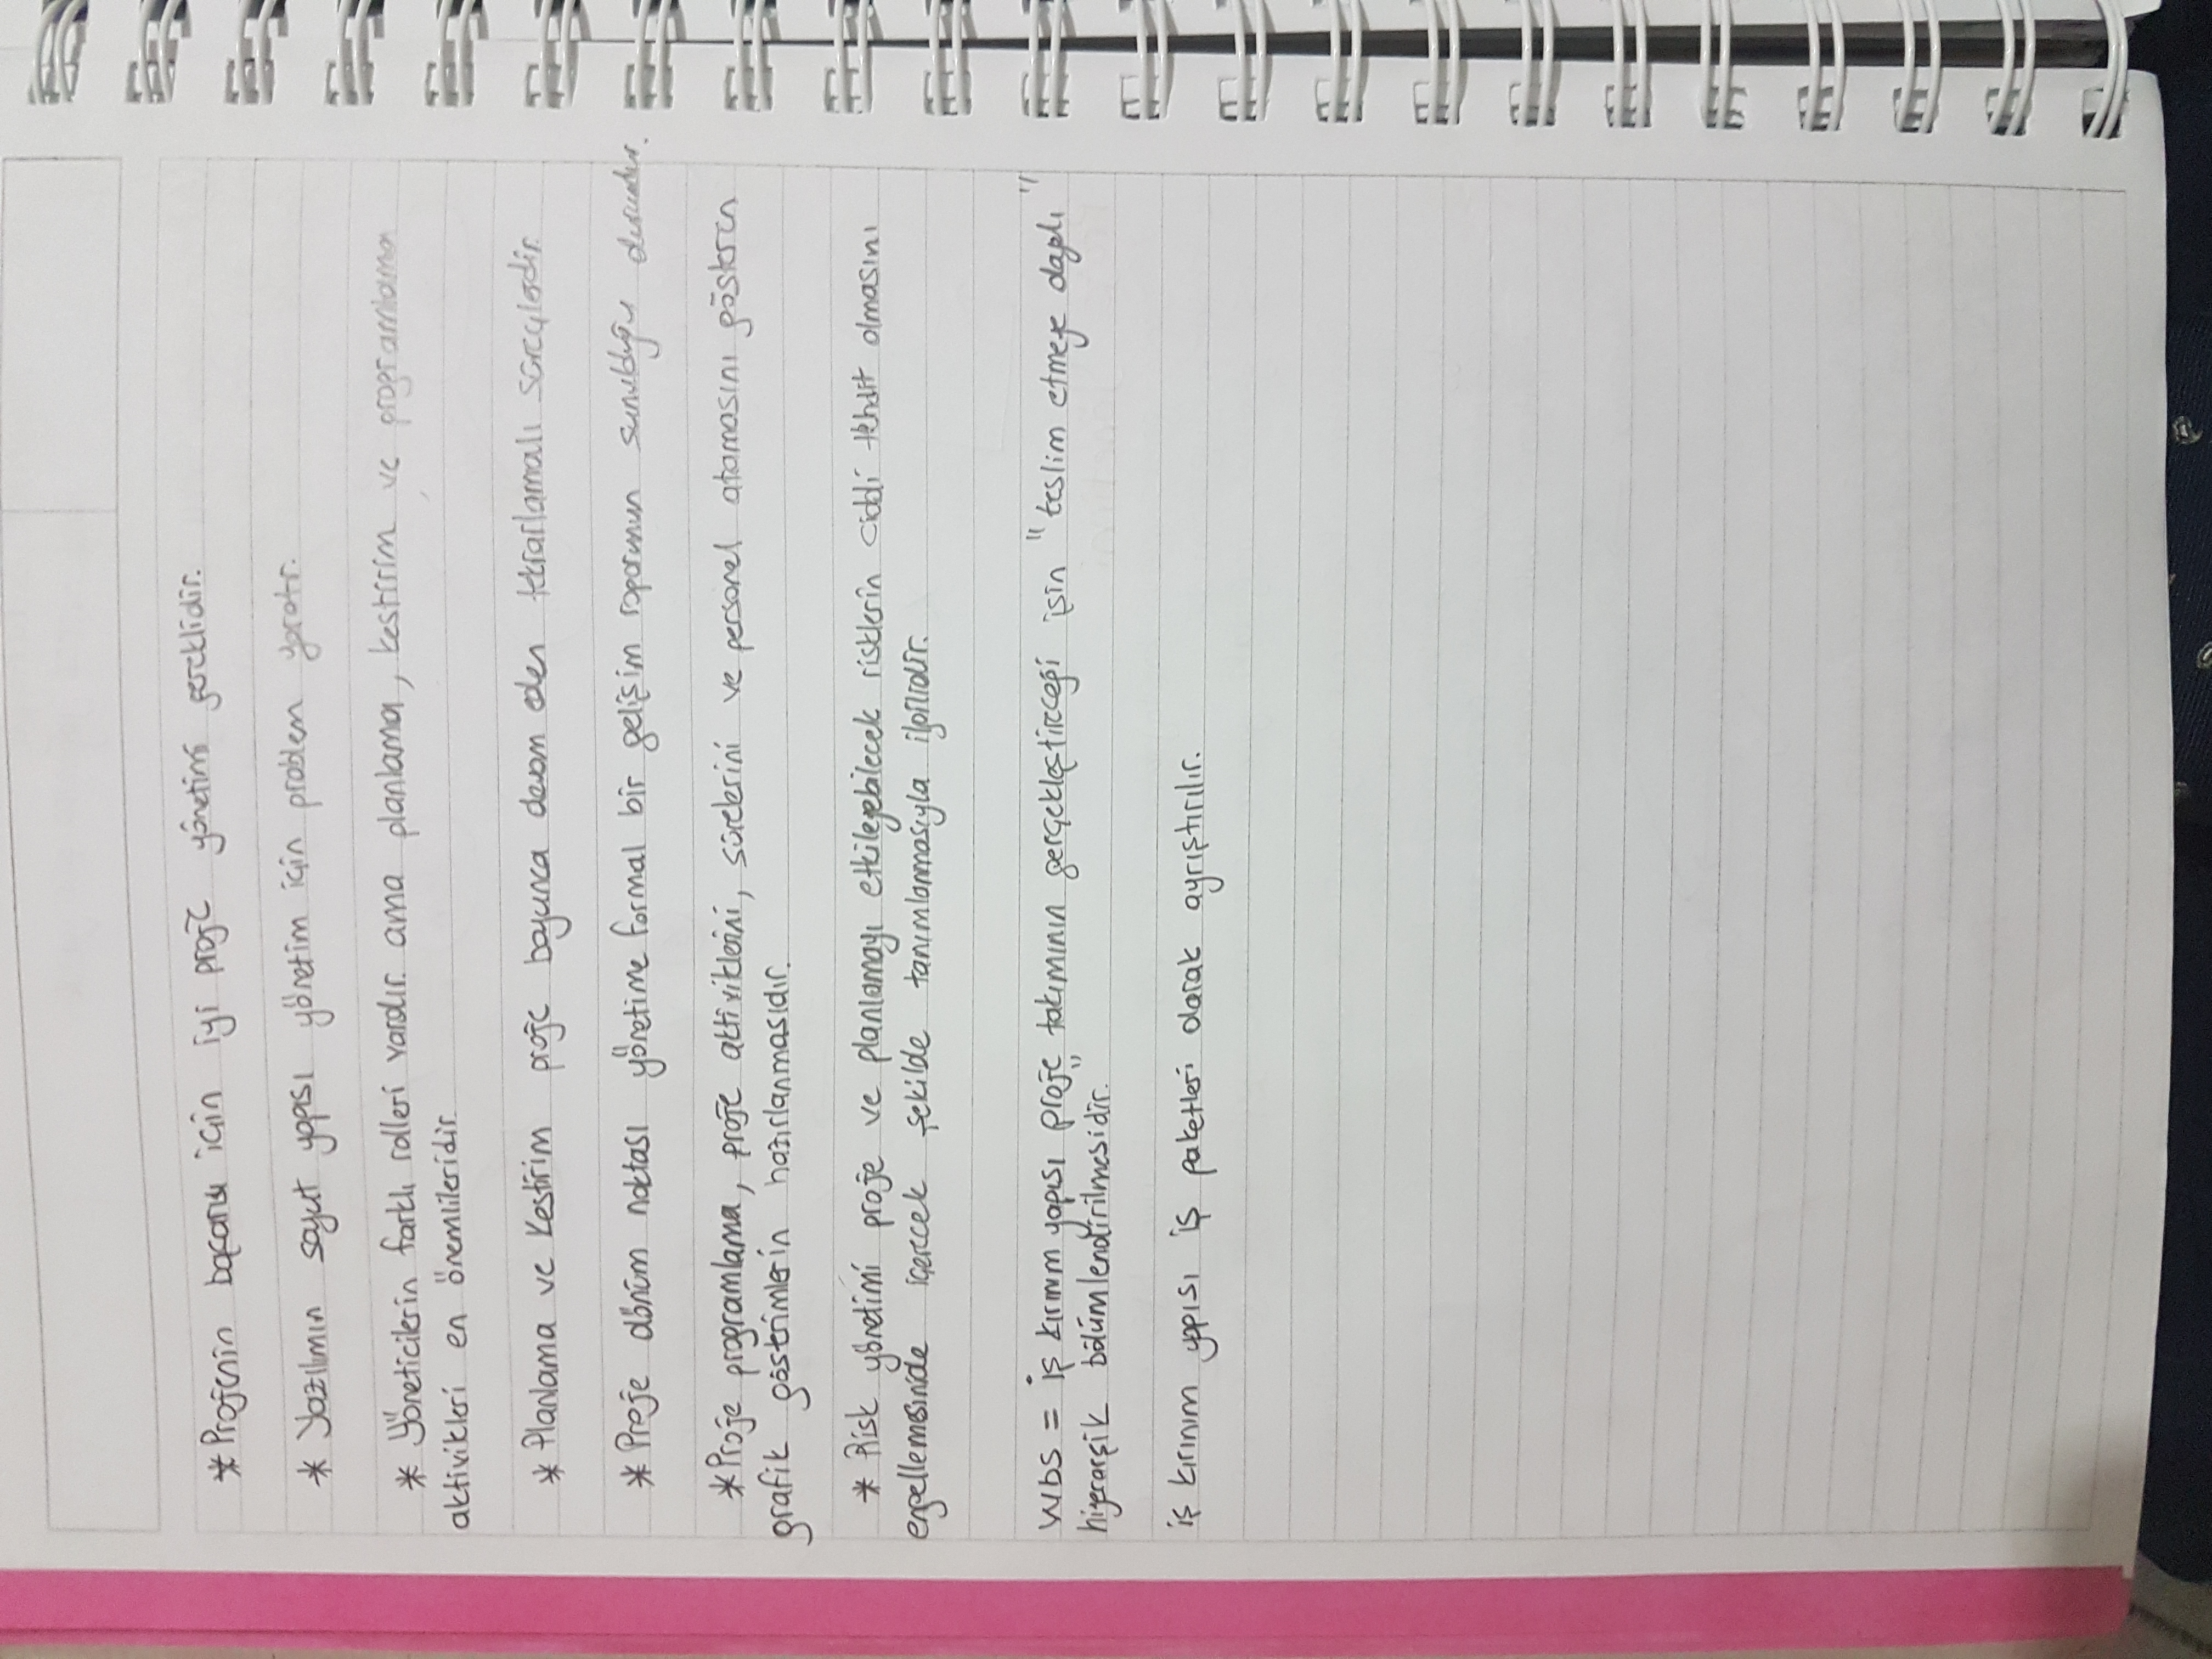 * Projenin başarısı için iyi proje yönetimi gereklidir.
* Yazılımın soyut yapısı yönetim için problem yaratır.
* Yöneticilerin farklı rolleri vardır. ama planlama, kestirim ve programlama
aktivikleri en önemlileridir.
* Planlama ve Kestirim proje boyunca devam eden tekrarlamalı süreçlerdir.
* Proje dönüm noktası yönetime formal bir gelişim raporunun sunulduğu durumdur.
* Proje programlama, proje aktiviklerini, sürelerini ve personel atamasını gösteren
grafik gösterimlerin hazırlanmasıdır.
* Risk yönetimi proje ve planlamayı etkileyebilecek risklerin ciddi tehdit olmasını
engellemesinide içerecek şekilde tanımlanmasıyla ilgilidir.
WBS = iş kırınım yapısı proje takımının gerçekleştireceği işin "teslim etmeye dayalı"
hiyerarşik bölümlendirilmesidir."
iş kırınım yapısı iş paketleri olarak ayrıştırılır.